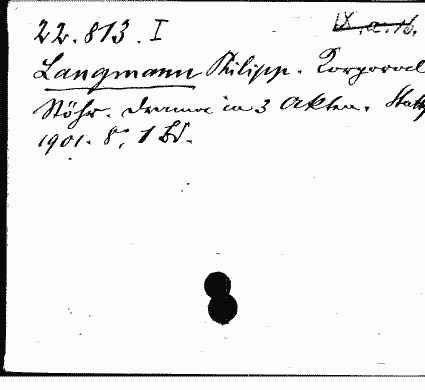 22.813. I
IX.a.16.
Langmann Philipp. Korporal
Stöhr. Drama in 3 Akten. Stuttg
1901. 8°, 1 Bd.